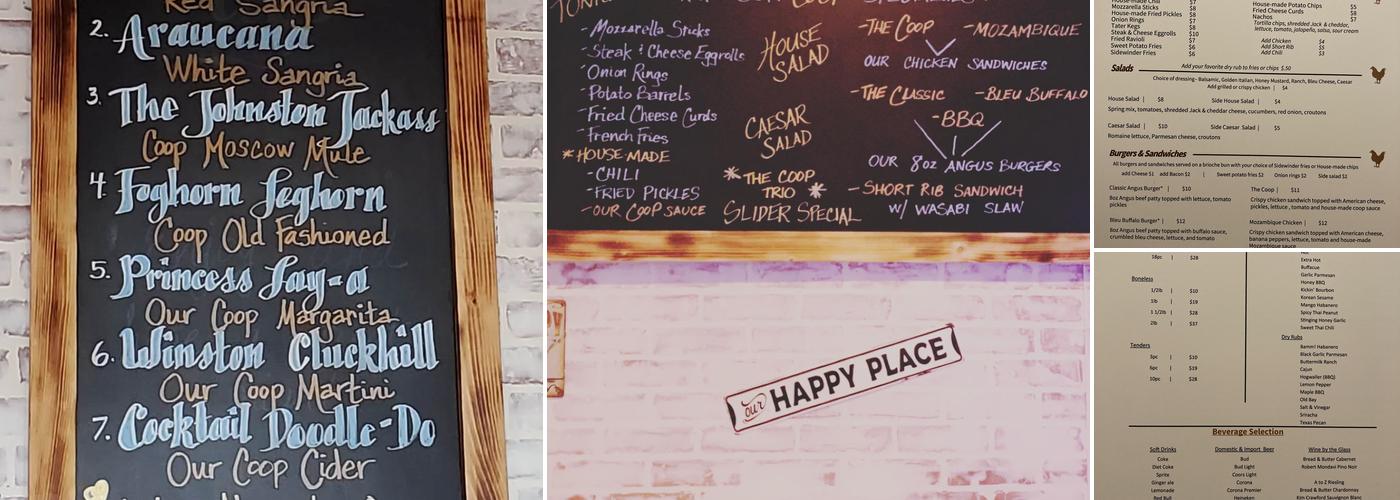 Red Sangria
2. Araucana
White Sangria
3. The Johnston Jackass
Coop Moscow Mule
4. Foghorn Leghorn
Coop Old Fashioned
5. Princess Lay-a
Our Coop Margarita
6. Winston Cluckhill
Our Coop Martini
7. Cocktail Doodle-Do
Our Coop Cider
- Mozzarella Sticks
- Steak & Cheese Eggrolls
- Onion Rings
- Potato Barrels
- Fried Cheese Curds
- French Fries
* HOUSE MADE
- CHILI
- FRIED PICKLES
- OUR COOP SAUCE
HOUSE
SALAD
CAESAR
SALAD
* THE COOP *
TRIO
SLIDER SPECIAL
- THE COOP - MOZAMBIQUE
OUR CHICKEN SANDWICHES
- THE CLASSIC - BLEU BUFFALO
- BBQ
OUR 8oz ANGUS BURGERS
- SHORT RIB SANDWICH
W/ WASABI SLAW
our HAPPY PLACE
House-made Chili $7
Mozzarella Sticks $8
House-made Fried Pickles $8
Onion Rings $7
Tater Kegs $8
Steak & Cheese Eggrolls $10
Fried Ravioli $7
Sweet Potato Fries $6
Sidewinder Fries $6
House-made Potato Chips $5
Fried Cheese Curds $8
Nachos $7
Tortilla chips, shredded Jack & cheddar,
lettuce, tomato, jalapeño, salsa, sour cream
Add Chicken $4
Add Short Rib $5
Add Chili $3
Add your favorite dry rub to fries or chips $.50
Salads
Choice of dressing- Balsamic, Golden Italian, Honey Mustard, Ranch, Bleu Cheese, Caesar
Add grilled or crispy chicken | $4
House Salad | $8 Side House Salad | $4
Spring mix, tomatoes, shredded Jack & cheddar cheese, cucumbers, red onion, croutons
Caesar Salad | $10 Side Caesar Salad | $5
Romaine lettuce, Parmesan cheese, croutons
Burgers & Sandwiches
All burgers and sandwiches served on a brioche bun with your choice of Sidewinder fries or House-made chips
add Cheese $1 add Bacon $2 | Sweet potato fries $2 Onion rings $2 Side salad $1
Classic Angus Burger* | $10
8oz Angus beef patty topped with lettuce, tomato
pickles
Bleu Buffalo Burger* | $12
8oz Angus beef patty topped with buffalo sauce,
crumbled bleu cheese, lettuce, and tomato
The Coop | $11
Crispy chicken sandwich topped with American cheese,
pickles, lettuce, tomato and house-made coop sauce
Mozambique Chicken | $12
Crispy chicken sandwich topped with American cheese,
banana peppers, lettuce, tomato and house-made
Mozambique sauce
18pc | $28
Boneless
1/2lb | $10
1lb | $19
1 1/2lb | $28
2lb | $37
Tenders
3pc | $10
6pc | $19
10pc | $28
Hot
Extra Hot
Buffacue
Garlic Parmesan
Honey BBQ
Kickin' Bourbon
Korean Sesame
Mango Habanero
Spicy Thai Peanut
Stinging Honey Garlic
Sweet Thai Chili
Dry Rubs
Bamm! Habanero
Black Garlic Parmesan
Buttermilk Ranch
Cajun
Hogwaller (BBQ)
Lemon Pepper
Maple BBQ
Old Bay
Salt & Vinegar
Sriracha
Texas Pecan
Beverage Selection
Soft Drinks
Coke
Diet Coke
Sprite
Ginger ale
Lemonade
Red Bull
Domestic & Import Beer
Bud
Bud Light
Coors Light
Corona
Corona Premier
Heineken
Wine by the Glass
Bread & Butter Cabernet
Robert Mondavi Pino Noir
A to Z Riesling
Bread & Butter Chardonnay
Kim Crawford Sauvignon Blanc